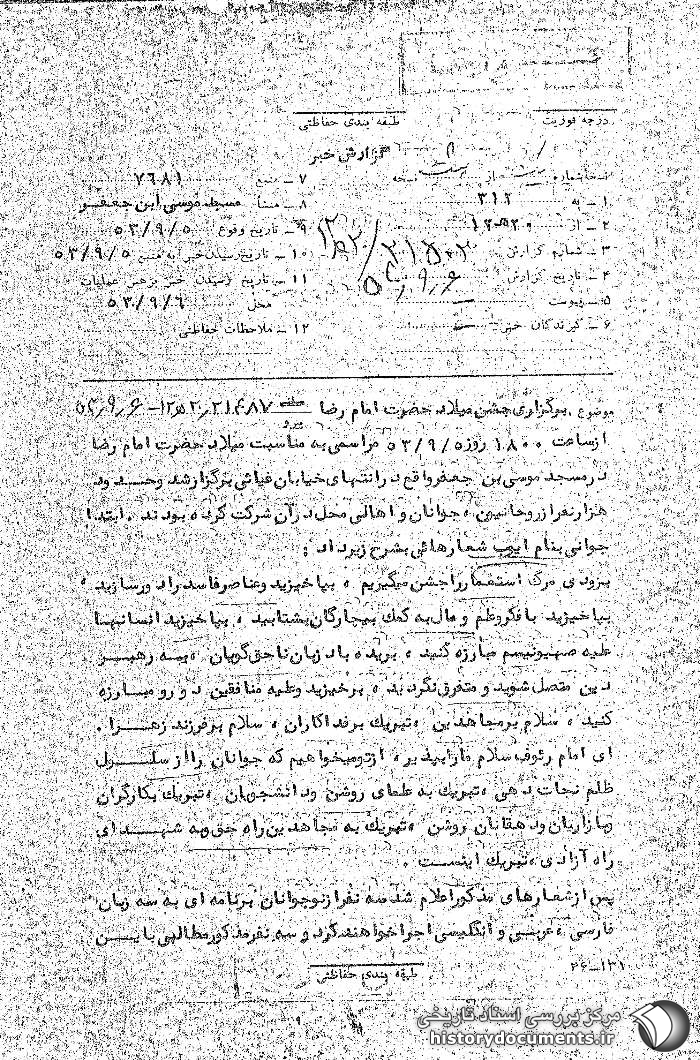 درجه فوریت
طبقه بندی حفاظتی
گزارش خبر
۱ـ به ۳۱۲
۲ـ از
۳ـ شماره گزارش
۴ـ تاریخ گزارش
۵ـ پیوست
۶ـ گیرندگان خبر
۷ـ منبع ۷۶۸۱
۸ـ منشأ مسجد موسی ابن جعفر
۹ـ تاریخ وقوع ۵۳/۹/۵
۱۰ـ تاریخ رسیدن خبر به منبع ۵۳/۹/۵
۱۱ـ تاریخ رسیدن خبر برهبر عملیات
محل ۵۳/۹/۶
۱۲ـ ملاحظات حفاظتی
موضوع . برگزاری جشن میلاد حضرت امام رضا
ازساعت ۱۸۰۰ روز ۵۳/۹/۵ مراسمی به مناسبت میلاد حضرت امام رضا
در مسجد موسی بن جعفر واقع در انتهای خیابان غیاثی برگزار شد وحدود
هزار نفر از روحانیون ، جوانان و اهالی محل در آن شرکت کرده بودند . ابتدا
جوانی بنام ایوب شعارهائی بشرح زیر داد :
بزودی مرگ استعمار را جشن میگیریم ، بپا خیزید وعناصر فاسد راد ورسازید ،
بپا خیزید با فکر وقلم و مال به کمک بیچارگان بشتابید ، بپا خیزید انسانها
علیه صهیونیسم مبارزه کنید ، بریده باد زبان ناحق گویان ، به رهبر
دین متصل شوید و متفرق نگردید ، برخیزید وعلیه منافقین دورو مبارزه
کنید ، سلام بر مجاهدین ، تبریک برفداکاران ، سلام برفرزند زهرا .
ای امام رئوف سلام ما را بپذیر ، از تو میخواهیم که جوانان را از سلول
ظلم نجات دهی ، تبریک به علمای روشن ودانشجویان ، تبریک بکارگران
وبازاریان ودهقانان روشن ، تبریک به مجاهدین راه حق وبه شهدای
راه آزادی ، تبریک اینست .
پس از شعارهای مذکور اعلام شد سه نفر از نوجوانان برنامه ای به سه زبان
فارسی ، عربی و انگلیسی اجرا خواهند کرد و سه نفر مذکور مطالبی باین
۲۶-۱۳۱
طبقه بندی حفاظتی
مرکز بررسی اسناد تاریخی
historydocuments.ir